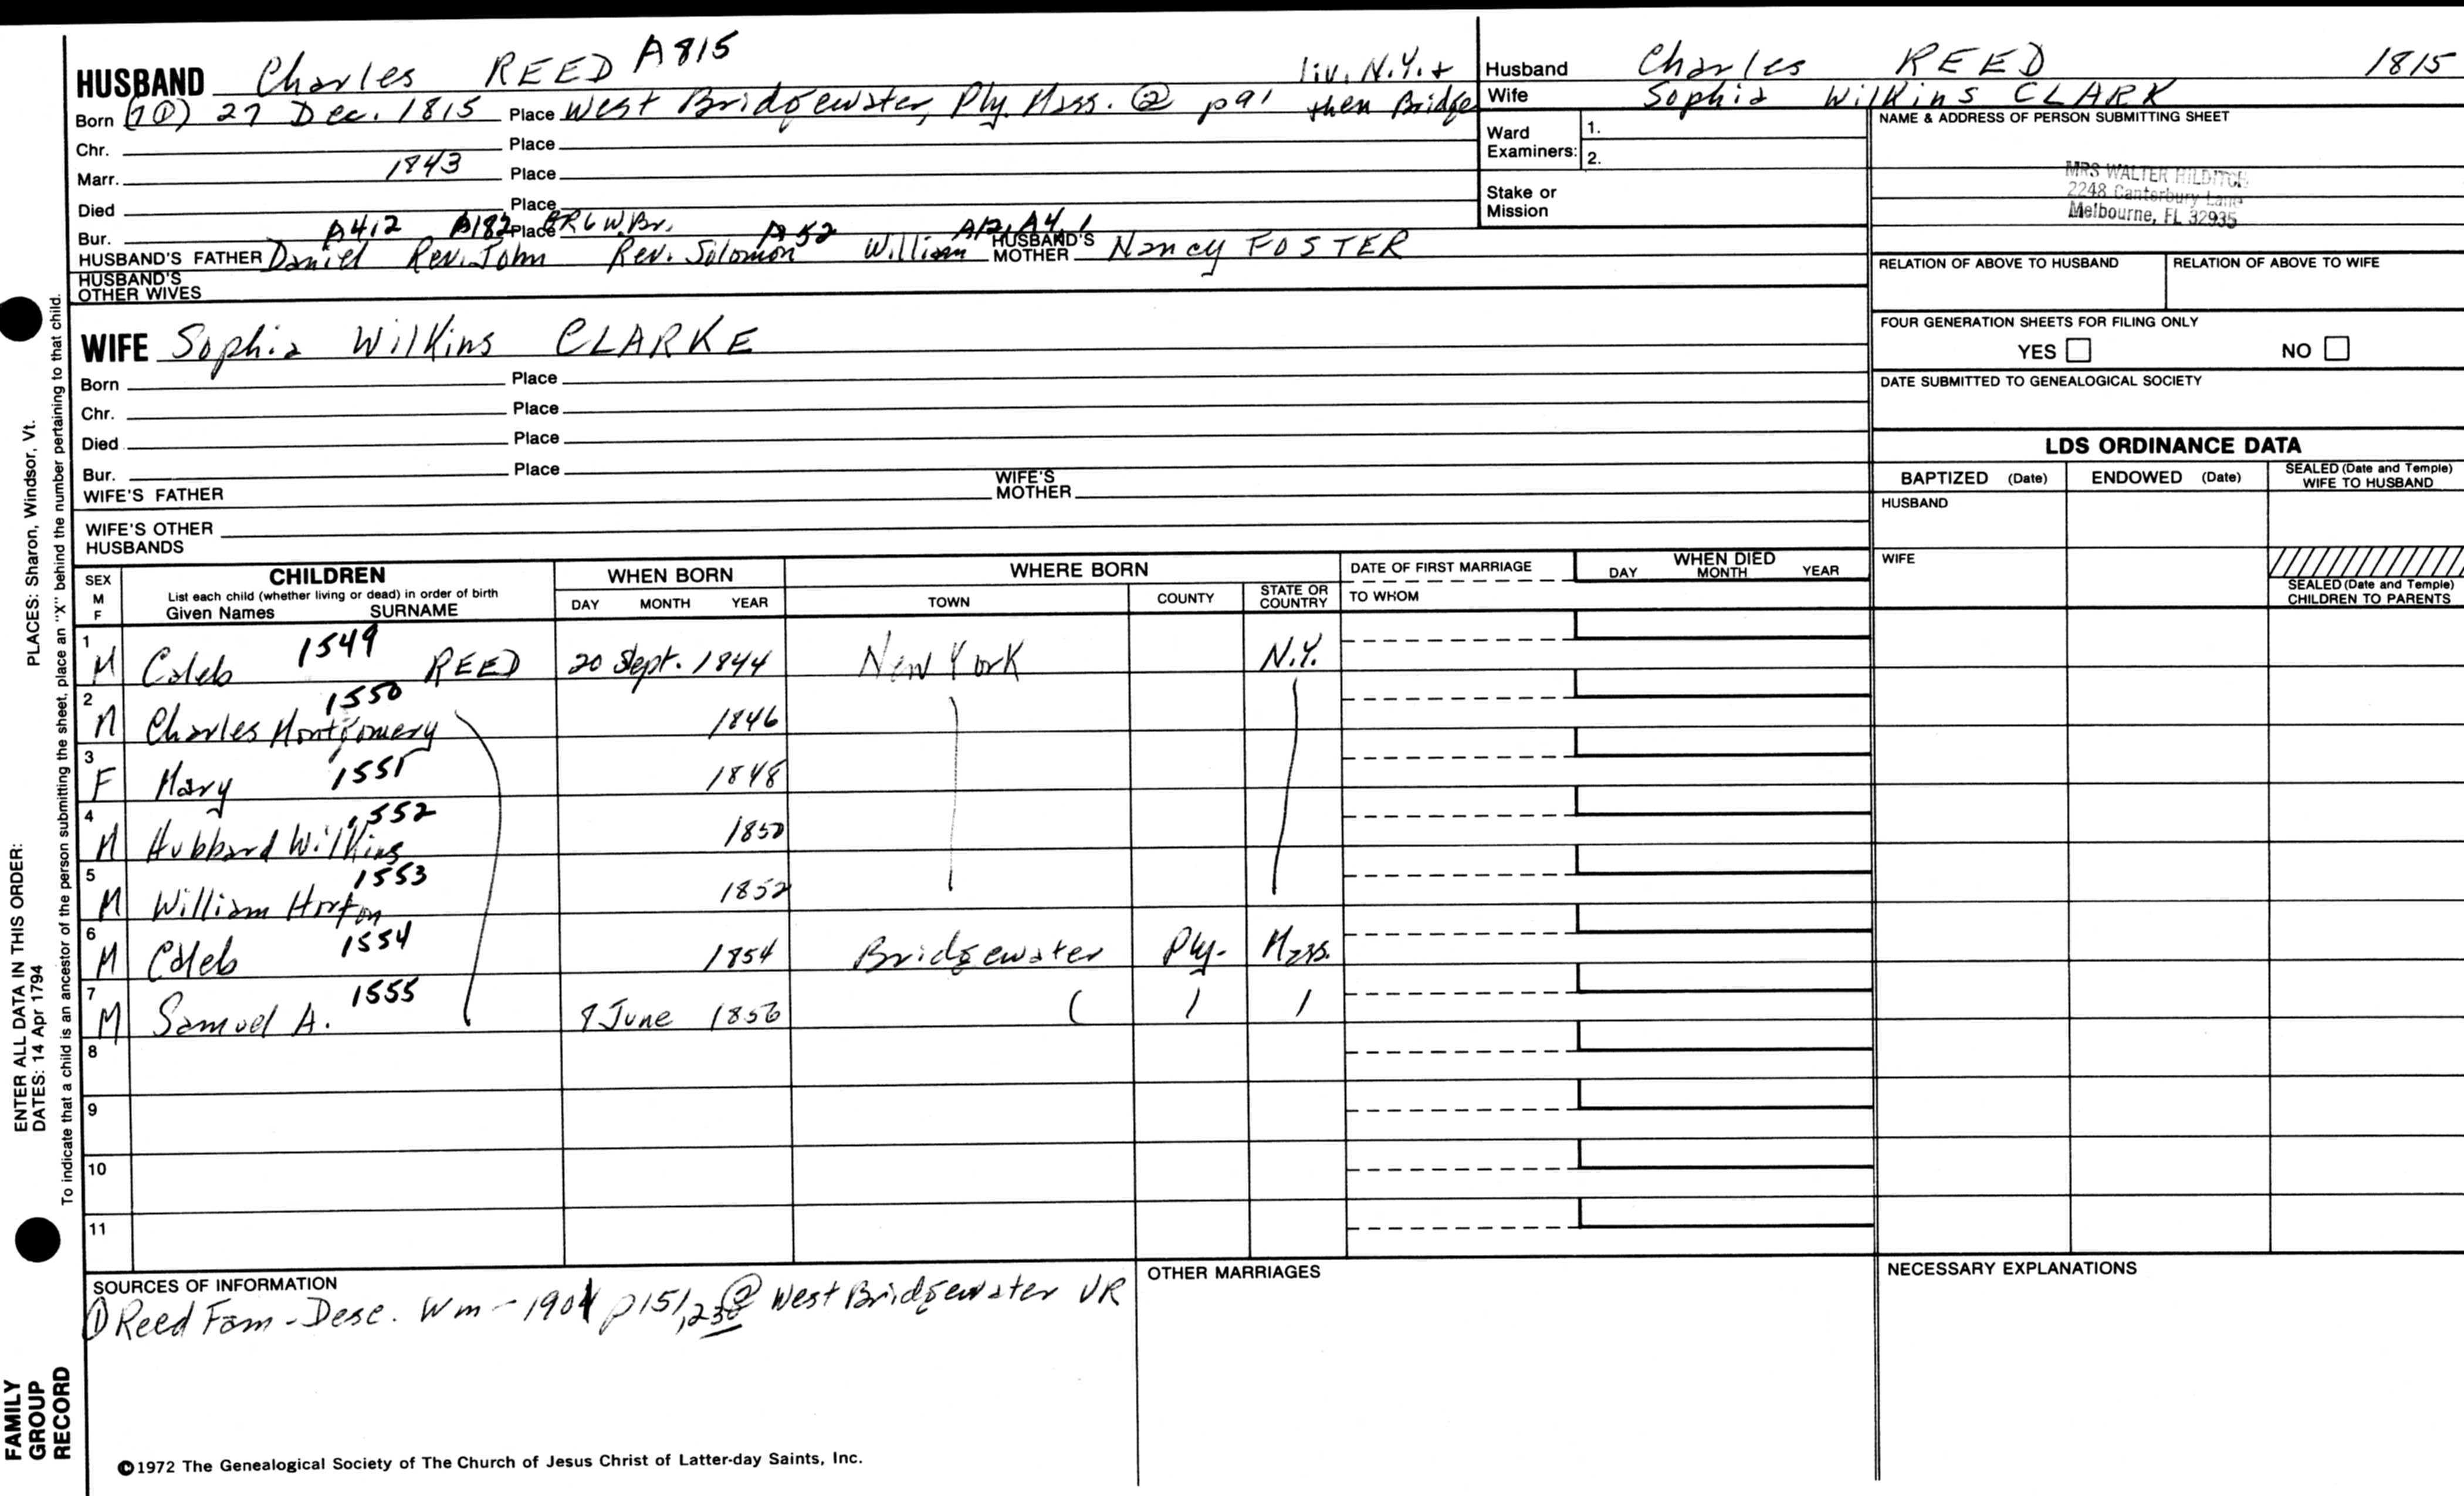 HUSBAND Charles REED A815 liv. N.Y. +
Born (1①) 27 Dec. 1815 Place West Bridgewater, Ply. Mass. ② p91 then Bridge
Chr. Place
Marr. 1843 Place
Died Place
Bur. A412 A182 Place BRG W.Br. A52 A12, A4, 1
HUSBAND'S FATHER Daniel Rev. John Rev. Solomon William HUSBAND'S MOTHER Nancy FOSTER
HUSBAND'S OTHER WIVES
Husband Charles REED 1815
Wife Sophia Wilkins CLARK
Ward Examiners: 1.
2.
Stake or Mission
NAME & ADDRESS OF PERSON SUBMITTING SHEET
MRS WALTER HILDITCH
2248 Canterbury Lane
Melbourne, FL 32935
RELATION OF ABOVE TO HUSBAND RELATION OF ABOVE TO WIFE
FOUR GENERATION SHEETS FOR FILING ONLY
YES NO
DATE SUBMITTED TO GENEALOGICAL SOCIETY
WIFE Sophia Wilkins CLARKE
Born Place
Chr. Place
Died Place
Bur. Place
WIFE'S FATHER WIFE'S MOTHER
WIFE'S OTHER HUSBANDS
LDS ORDINANCE DATA
BAPTIZED (Date) ENDOWED (Date) SEALED (Date and Temple) WIFE TO HUSBAND
HUSBAND
WIFE
SEALED (Date and Temple) CHILDREN TO PARENTS
SEX M F
CHILDREN
List each child (whether living or dead) in order of birth
Given Names SURNAME
WHEN BORN
DAY MONTH YEAR
WHERE BORN
TOWN COUNTY STATE OR COUNTRY
DATE OF FIRST MARRIAGE
TO WHOM
WHEN DIED
DAY MONTH YEAR
1 M Caleb 1549 REED 20 Sept. 1844 New York N.Y.
2 M Charles Montgomery 1550 1846
3 F Mary 1551 1848
4 M Hubbard Wilkins 1552 1850
5 M William Horton 1553 1852
6 M Caleb 1554 1854 Bridgewater Ply. Mass.
7 M Samuel A. 1555 8 June 1856
8
9
10
11
SOURCES OF INFORMATION
① Reed Fam - Desc. Wm - 1901 p151, 230 ② West Bridgewater VR
OTHER MARRIAGES
NECESSARY EXPLANATIONS
©1972 The Genealogical Society of The Church of Jesus Christ of Latter-day Saints, Inc.
FAMILY GROUP RECORD
ENTER ALL DATA IN THIS ORDER:
DATES: 14 Apr 1794
PLACES: Sharon, Windsor, Vt.
To indicate that a child is an ancestor of the person submitting the sheet, place an "X" behind the number pertaining to that child.